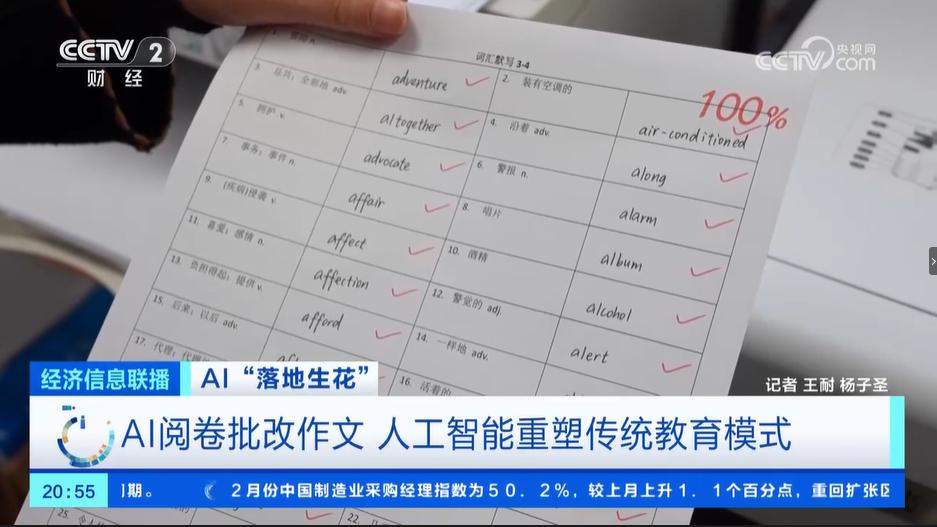 CCTV 2
财经
央视网
CCTV.com
词汇默写 3-4
100%
3. 总共；全部地 adv.
adventure
2. 装有空调的
air-conditioned
5. 拥护 v.
altogether
4. 沿着 adv.
along
7. 事务；事件 n.
advocate
6. 警报 n.
alarm
9. (疾病)侵袭 v.
affair
8. 唱片
album
11. 喜爱；感情 n.
affect
10. 酒精
alcohol
13. 负担得起；提供 v.
affection
12. 警觉的 adj.
alert
15. 后来；以后 adv.
afford
14. 一样地 adv.
17. 代理；代理
16. 活着的
经济信息联播
AI“落地生花”
记者 王耐 杨子圣
AI阅卷批改作文 人工智能重塑传统教育模式
20:55
期。
2月份中国制造业采购经理指数为50.2%，较上月上升1.1个百分点，重回扩张区
25.
22.